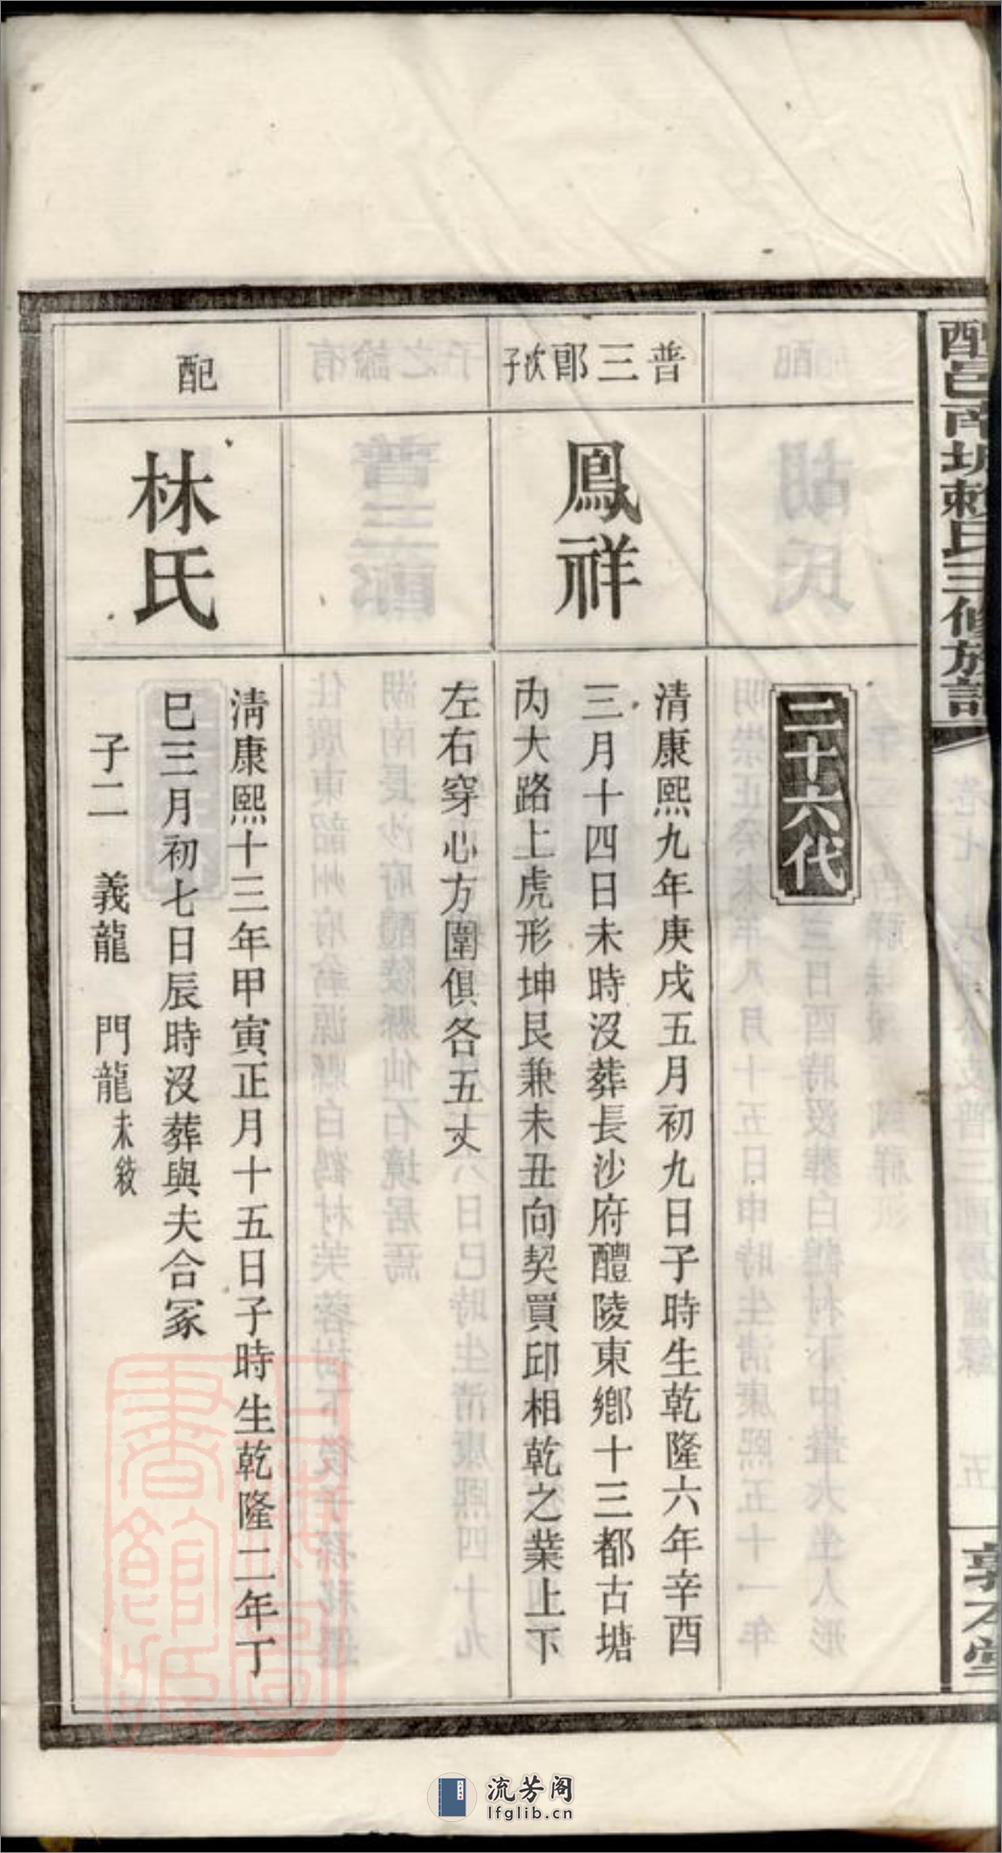 醴邑南城賴氏三修族譜
敦本堂
二十六代
普三郎次子
鳳祥
清康熙九年庚戌五月初九日子時生乾隆六年辛酉
三月十四日未時沒葬長沙府醴陵東鄉十三都古塘
內大路上虎形坤艮兼未丑向契買邱相乾之業上下
左右穿心方圍俱各五丈
配
林氏
淸康熙十三年甲寅正月十五日子時生乾隆二年丁
巳三月初七日辰時沒葬與夫合冢
子二　義龍　門龍未敘
流芳阁
lfglib.cn